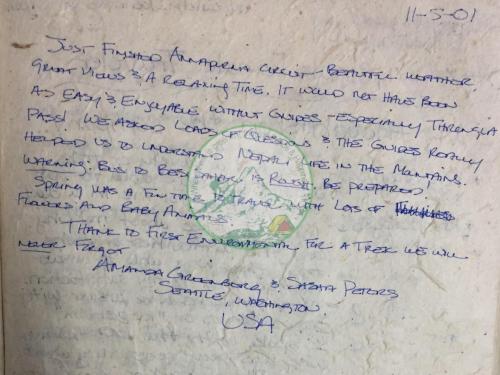 11-5-01
Just Finished Annapurna Circuit - Beautiful weather
Great Views & A Relaxing Time. It would not have been
as Easy & Enjoyable without Guides - Especially Throngla
Pass! We asked Loads of Questions & the Guides Really
Helped us to understand Nepali Life in the Mountains.
Warning: Bus to Besi Sahar is Rough. Be prepared
Spring was a Fun time to Travel with Lots of
Flowers and Baby Animals.
Thank to First Environmental For a Trek we will
never Forgot
Amanda Greenberg & Sasha Peters
Seattle, Washington
USA